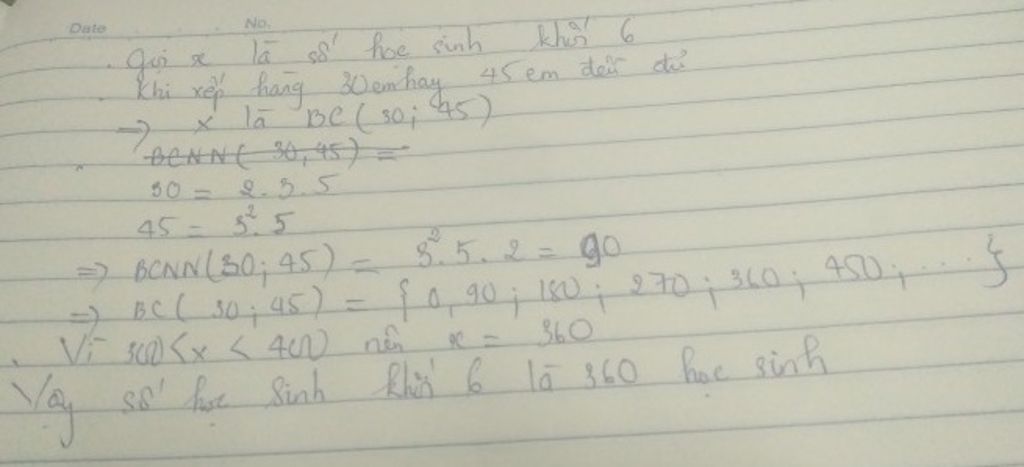 Date No.
. Gọi x là số học sinh khối 6
Khi xếp hàng 30 em hay 45 em đều đủ
=> x là BC (30; 45)
BCNN( 30, 45) =
30 = 2. 3. 5
45 = 3². 5
=> BCNN(30; 45) = 3². 5. 2 = 90
=> BC( 30; 45) = { 0, 90; 180; 270; 360; 450; ... }
. Vì 300 < x < 400 nên x = 360
Vậy số học sinh khối 6 là 360 học sinh